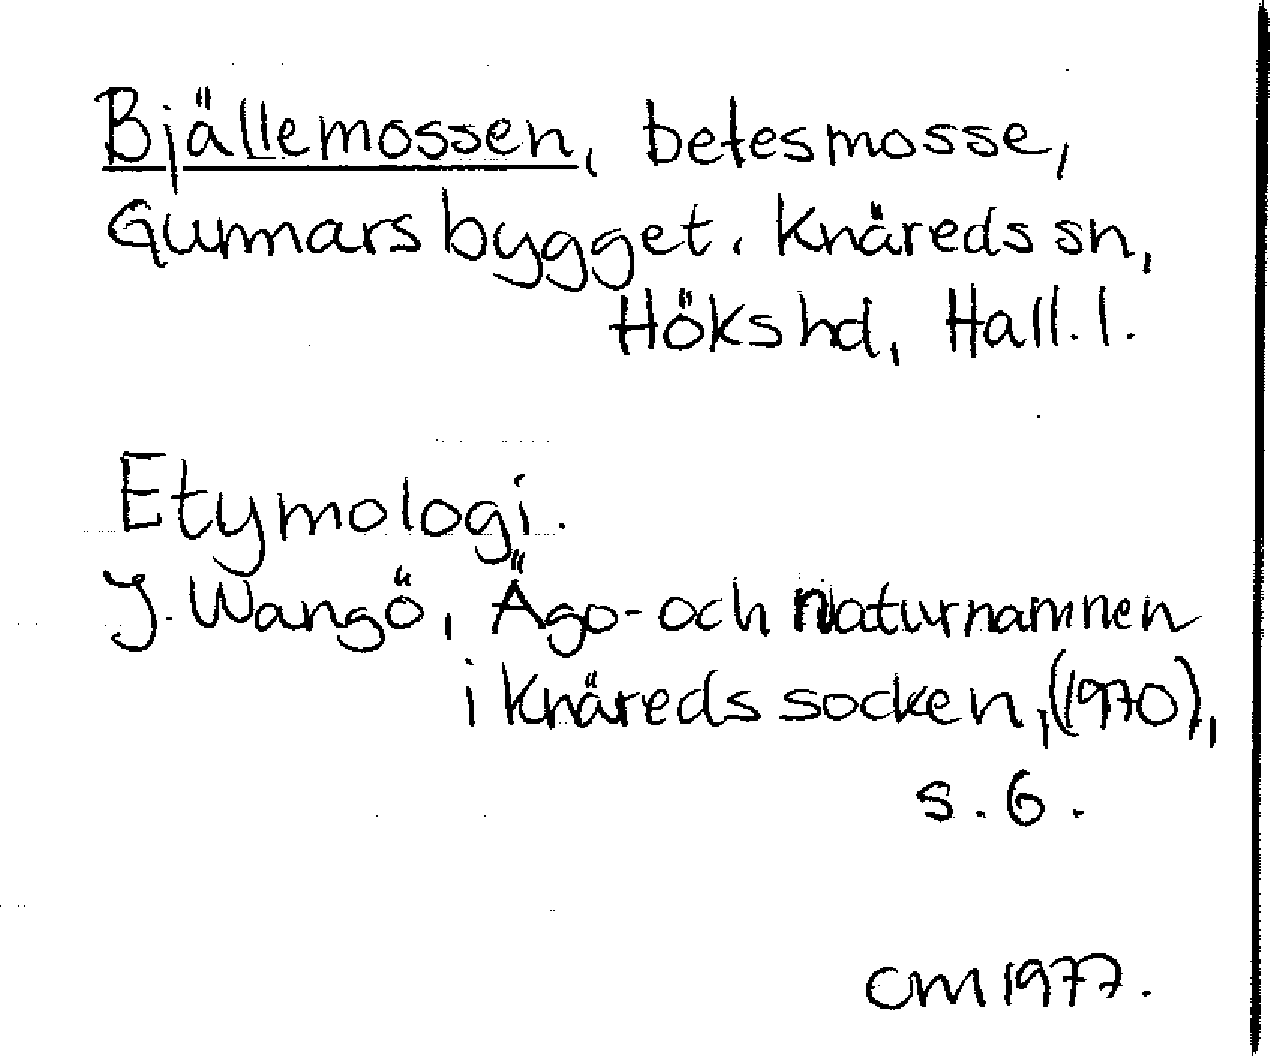 Bjällemossen, betesmosse,
Gunnarsbygget. Knäreds sn,
Höks hd, Hall. l.
Etymologi.
J. Wangö, Ägo- och naturnamnen
i Knäreds socken, (1970),
s. 6.
CM 1977.